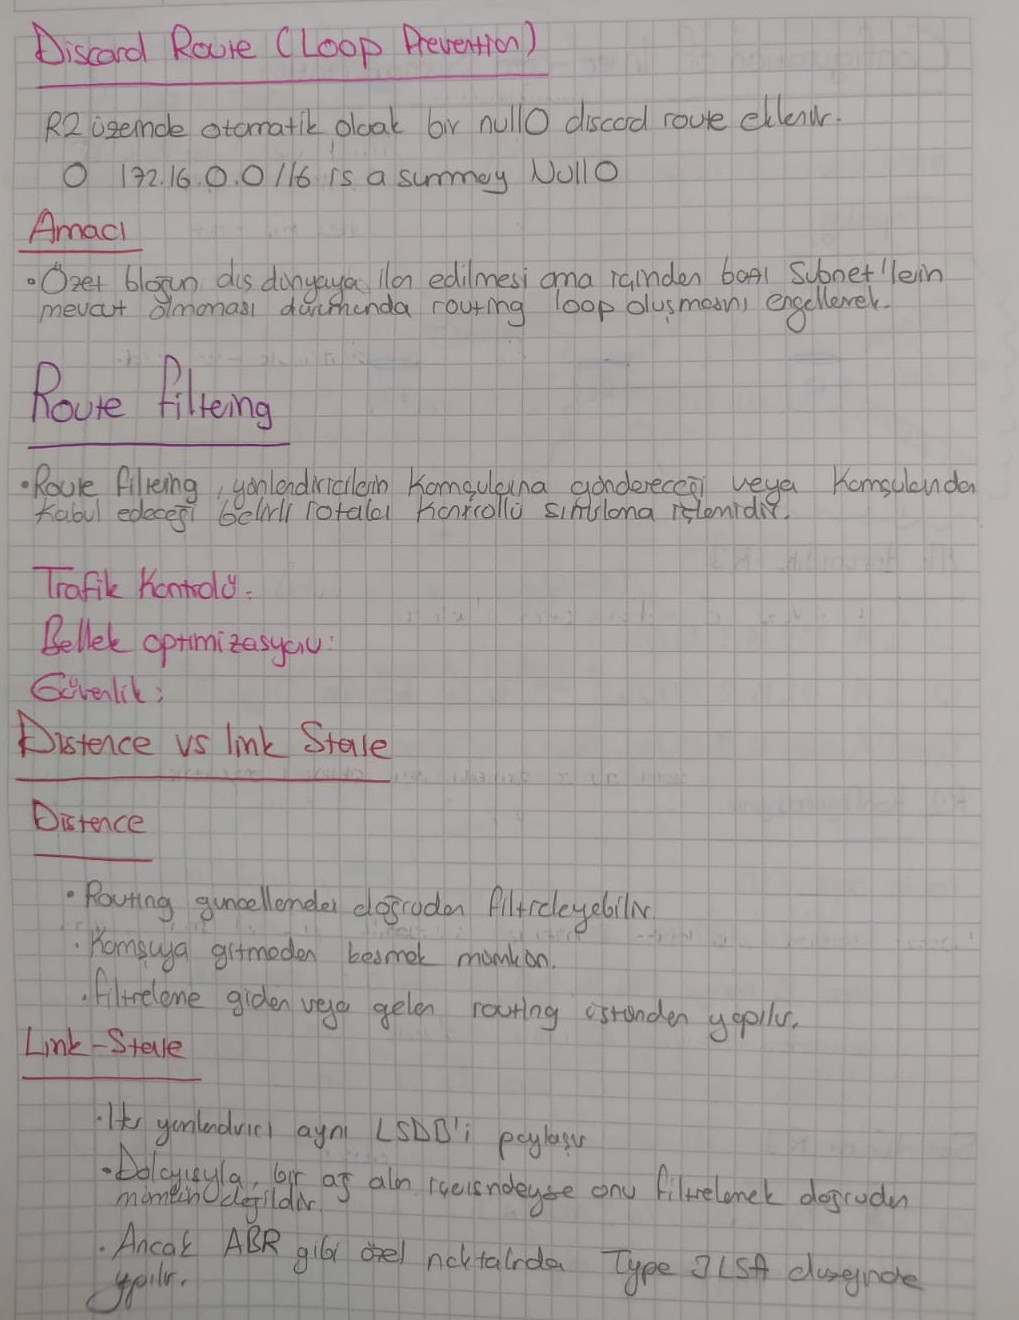 Discard Route (Loop Prevention)
R2 üzerinde otomatik olarak bir null0 discard route eklenir.
O 172.16.0.0/16 is a summary Null0
Amacı
• Özet bloğun dış dünyaya ilan edilmesi ama içinden bazı Subnet'lerin
mevcut olmaması durumunda routing loop oluşmasını engellemek.
Route filtering
• Route filtering, yönlendiricilerin komşularına göndereceği veya komşularından
kabul edeceği belirli rotaları kontrollü sınırlama işlemidir.
Trafik Kontrolü:
Bellek optimizasyonu:
Güvenlik:
Distence vs link State
Distence
• Routing güncellemeleri doğrudan filtreleyebilir
• Komşuya gitmeden kesmek mümkün.
• filtreleme giden veya gelen routing üstünden yapılır.
Link-State
• Her yönlendirici aynı LSDB'i paylaşır
• Dolayısıyla, bir ağ alan içerisindeyse onu filtrelemek doğrudan
mümkün değildir.
• Ancak ABR gibi özel noktalarda Type 3 LSA düzeyinde
yapılır.